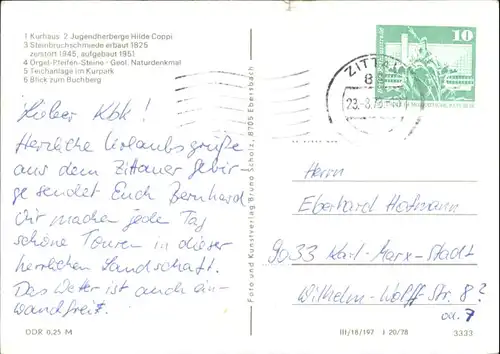 1 Kurhaus 2 Jugendherberge Hilde Coppi
3 Steinbruchschmiede erbaut 1825
zerstört 1945, aufgebaut 1951
4 Orgel-Pfeifen-Steine - Geol. Naturdenkmal
5 Teichanlage im Kurpark
6 Blick zum Buchberg
10
ZITTAU
8
23.-8.79
Lieber Kbk!
Herzliche Urlaubsgrüße
aus dem Zittauer Gebir-
ge sendet Euch Bernhard
Wir machen jede Tag
schöne Touren in dieser
herrlichen Landschaft.
Das Wetter ist auch ein-
wandfrei.
Foto und Kunstverlag Bruno Scholz, 8705 Ebersbach
Herrn
Eberhard Hofmann
9033 Karl-Marx-Stadt
Wilhelm-Wolff-Str. 8?
od. 7
DDR 0,25 M
III/18/197 I 20/78
3333